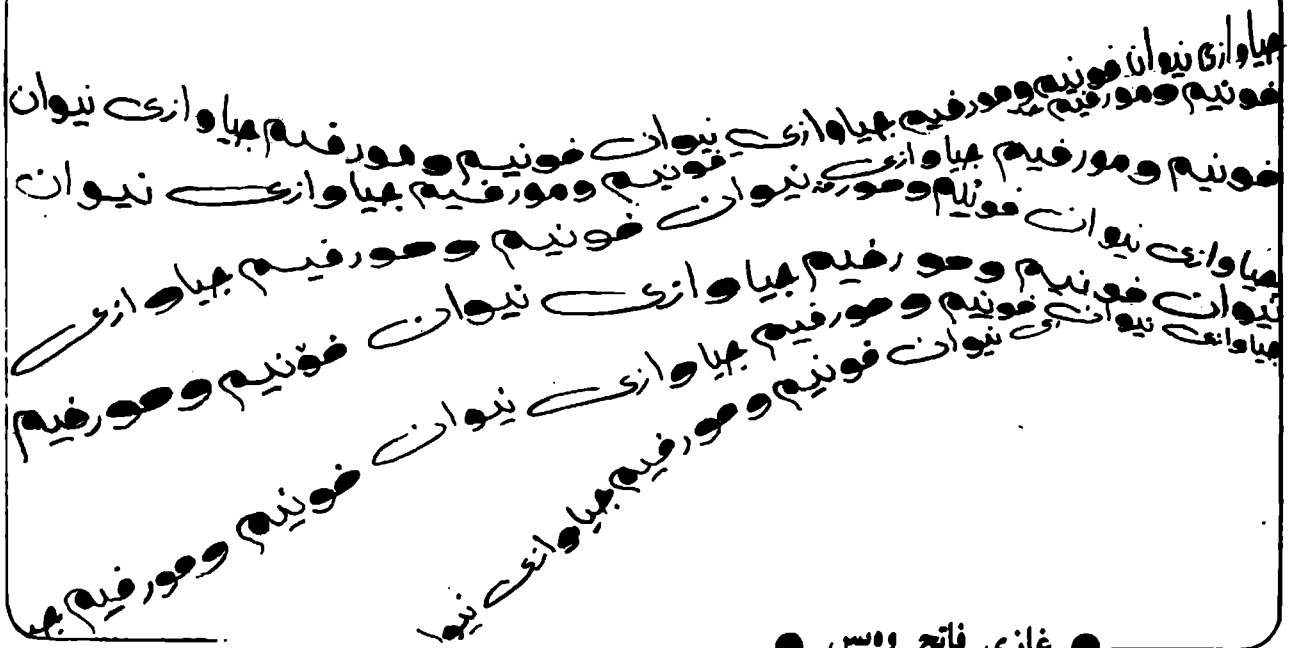 جیاوازی نیوان فونیم ومورفیم جیاوازی نیوان فونیم ومورفیم جیاوازی نیوان
فونیم ومورفیم جـ
فونیم ومورفیم جیاوازی نیوان
فونیم ومورفیم جیاوازی نیوان فونیم ومورفیم جیاوازی
جیاوازی نیوان فونیم ومورفـ
نیوان فونیم ومورفیم جیاوازی نیوان فۆنیم ومورفیم
جیاوازی نیوان فونیم ومورفیم جیاوازی نیوان فونیم ومورفیم جیـ
ی نیوان فونیم ومورفیم جیاوازی نیوا
● غازی فاتح وەیس ●